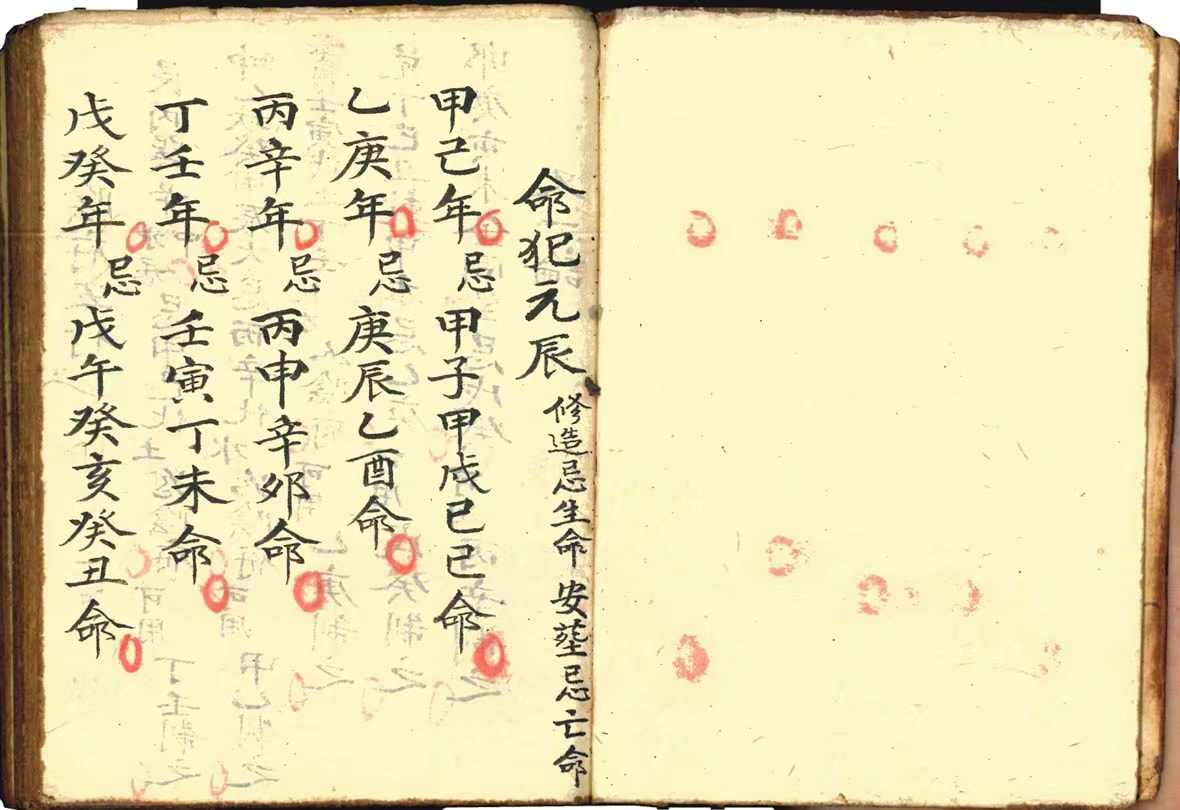 命犯元辰 修造忌生命 安葬忌亡命
甲己年 忌 甲子甲戌己巳命
乙庚年 忌 庚辰乙酉命
丙辛年 忌 丙申辛卯命
丁壬年 忌 壬寅丁未命
戊癸年 忌 戊午癸亥癸丑命